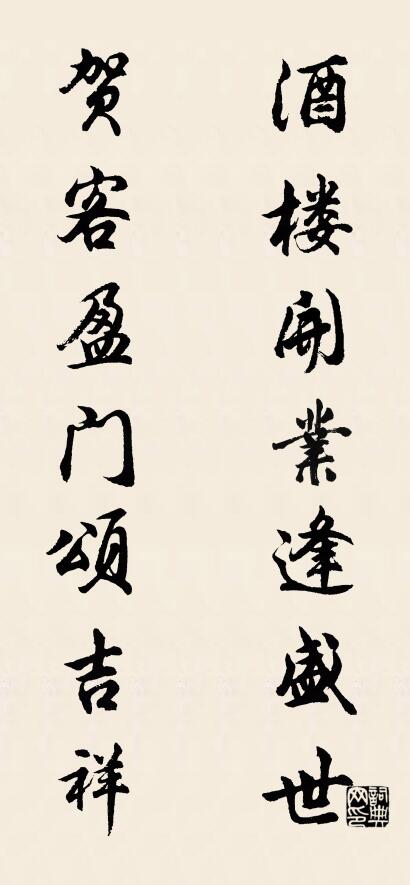 酒楼開業逢盛世
贺客盈门頌吉祥
詞典网印